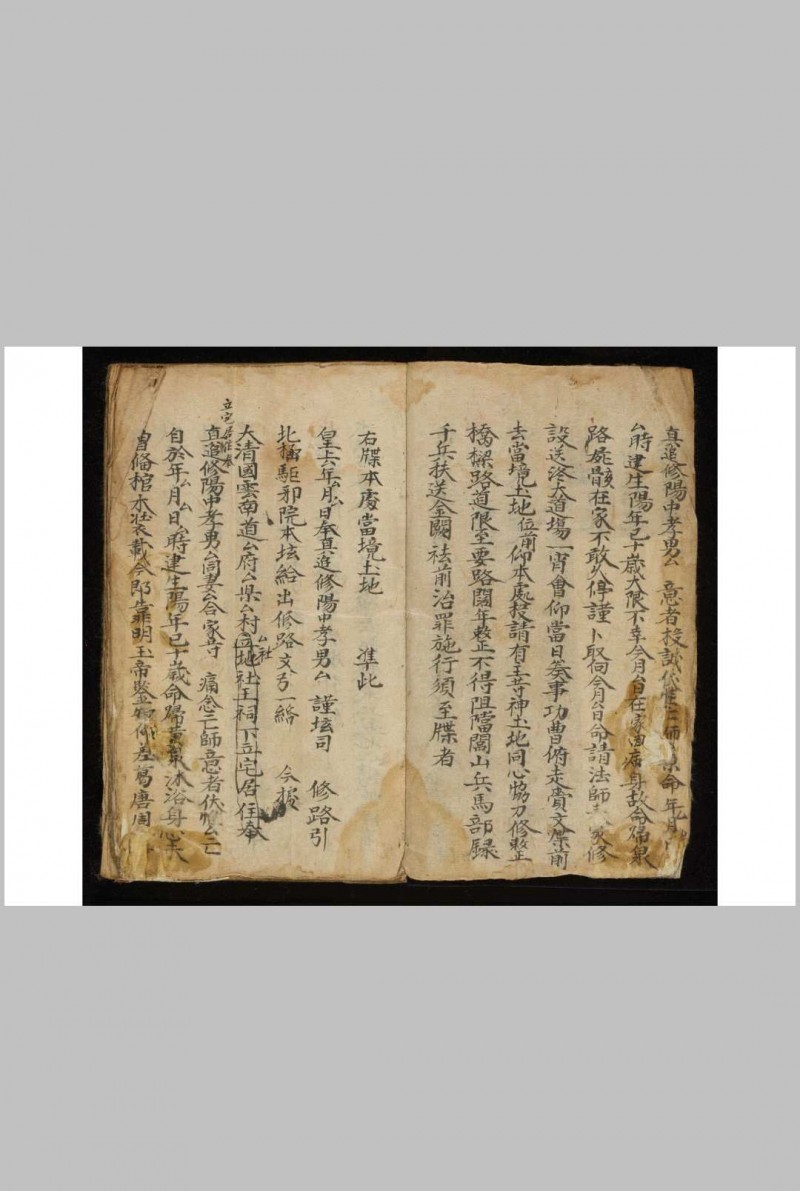 真追修陽中孝男厶 意者投誠伏惟亡師 命年月
厶時建生陽年已十歲大限不幸今月厶日在家因病身故命歸泉
路屍骸在家不敢久停謹卜取向今月厶日命請法師 修
設送終大道場一宵會仰當日奏事功曹俯走賫文牒前
去當境土地位前仰本處投請有主等神土地同心恊力修整
橋樑路道限至要路闊年整正不得阻當閭山兵馬部録
千兵扶送金闕袪前治罪施行須至牒者
右牒本處當境土地 準此
皇上六年厶月厶日奉真追修陽中孝男厶 謹坛司 修路引
北極駆邪院本坛給出修路文引一緍 今據
大清國雲南道厶府厶県厶村厶社立地社王祠下立宅居住奉
立宅居住奉
真追修陽中孝男厶同妻厶合家等 痛念亡師意者伏惟厶亡
自於年厶月厶日厶時建生陽年已十歲命歸黃泉沐浴身
曽俻棺木壯衣載今 靠明玉帝鑒 仰差葛唐周